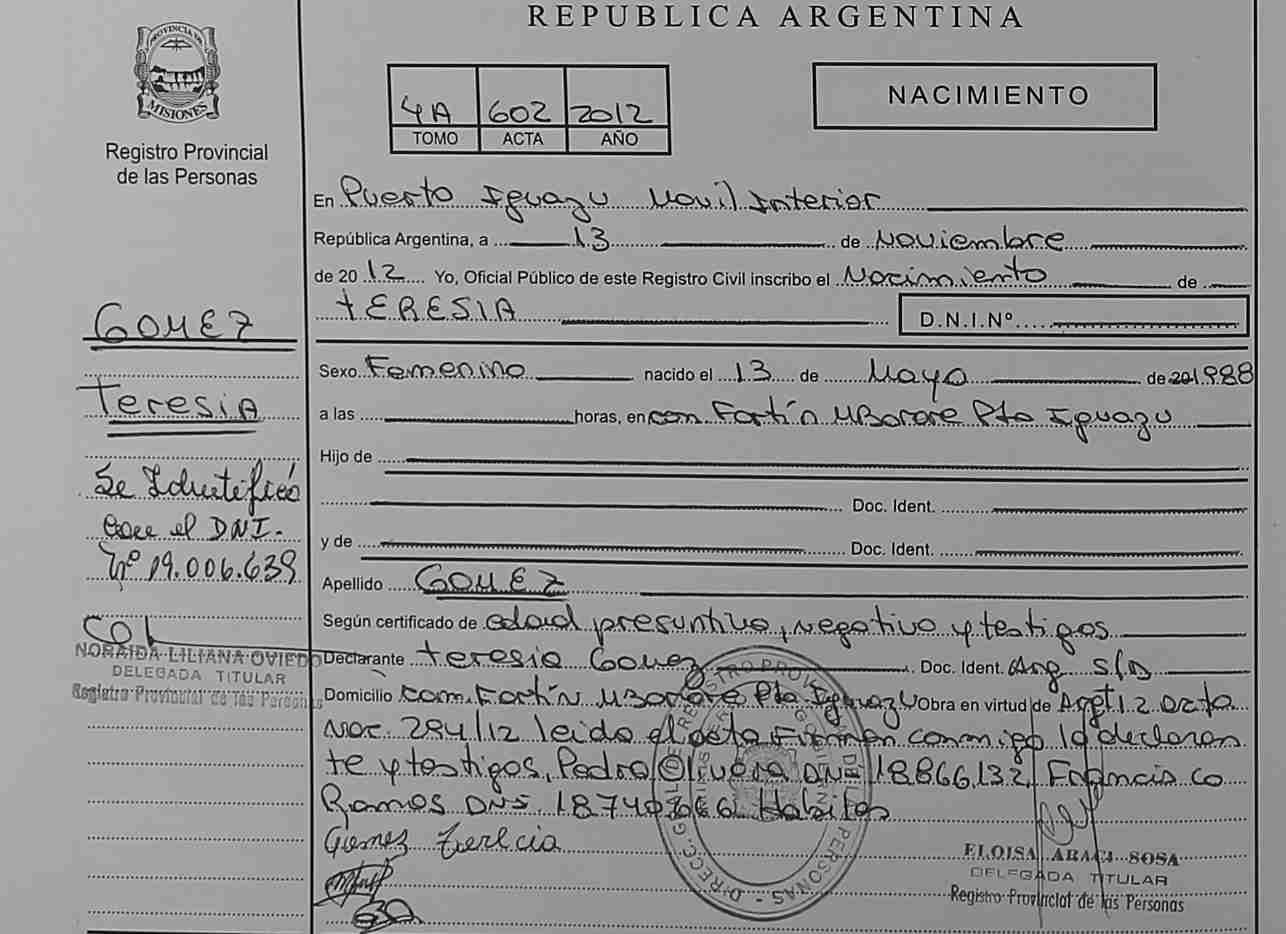 REPUBLICA ARGENTINA
PROVINCIA DE
MISIONES
Registro Provincial
de las Personas
4A 602 2012
TOMO ACTA AÑO
NACIMIENTO
En Puerto Iguazu Movil Interior
República Argentina, a 13 de Noviembre
de 20 12 Yo, Oficial Público de este Registro Civil inscribo el Nacimiento de
TERESIA
D.N.I.Nº
Sexo Femenino nacido el 13 de Mayo de 1988
a las horas, en com Fortín MBorore Pto Iguazu
Hijo de
Doc. Ident.
y de Doc. Ident.
Apellido GOMEZ
Según certificado de edad presuntiva, negativo y testigos
Declarante Teresia Gomez Doc. Ident. Arg S/D
Domicilio com. Fortín MBorore Pto Iguazu Obra en virtud de
Nac. 284/12 leido el acta Firman conmigo la declaran
te y testigos, Pedro Olivera DNI 18866.132, Francisco
Ramos DNI Habiles
Gomez Terecia
GOMEZ
Teresia
Se Identificó
con el DNI.
Nº 19.006.639
NORAIDA LILIANA OVIEDO
DELEGADA TITULAR
Registro Provincial de las Personas
ELOISA ARACI SOSA
DELEGADA TITULAR
Registro Provincial de las Personas